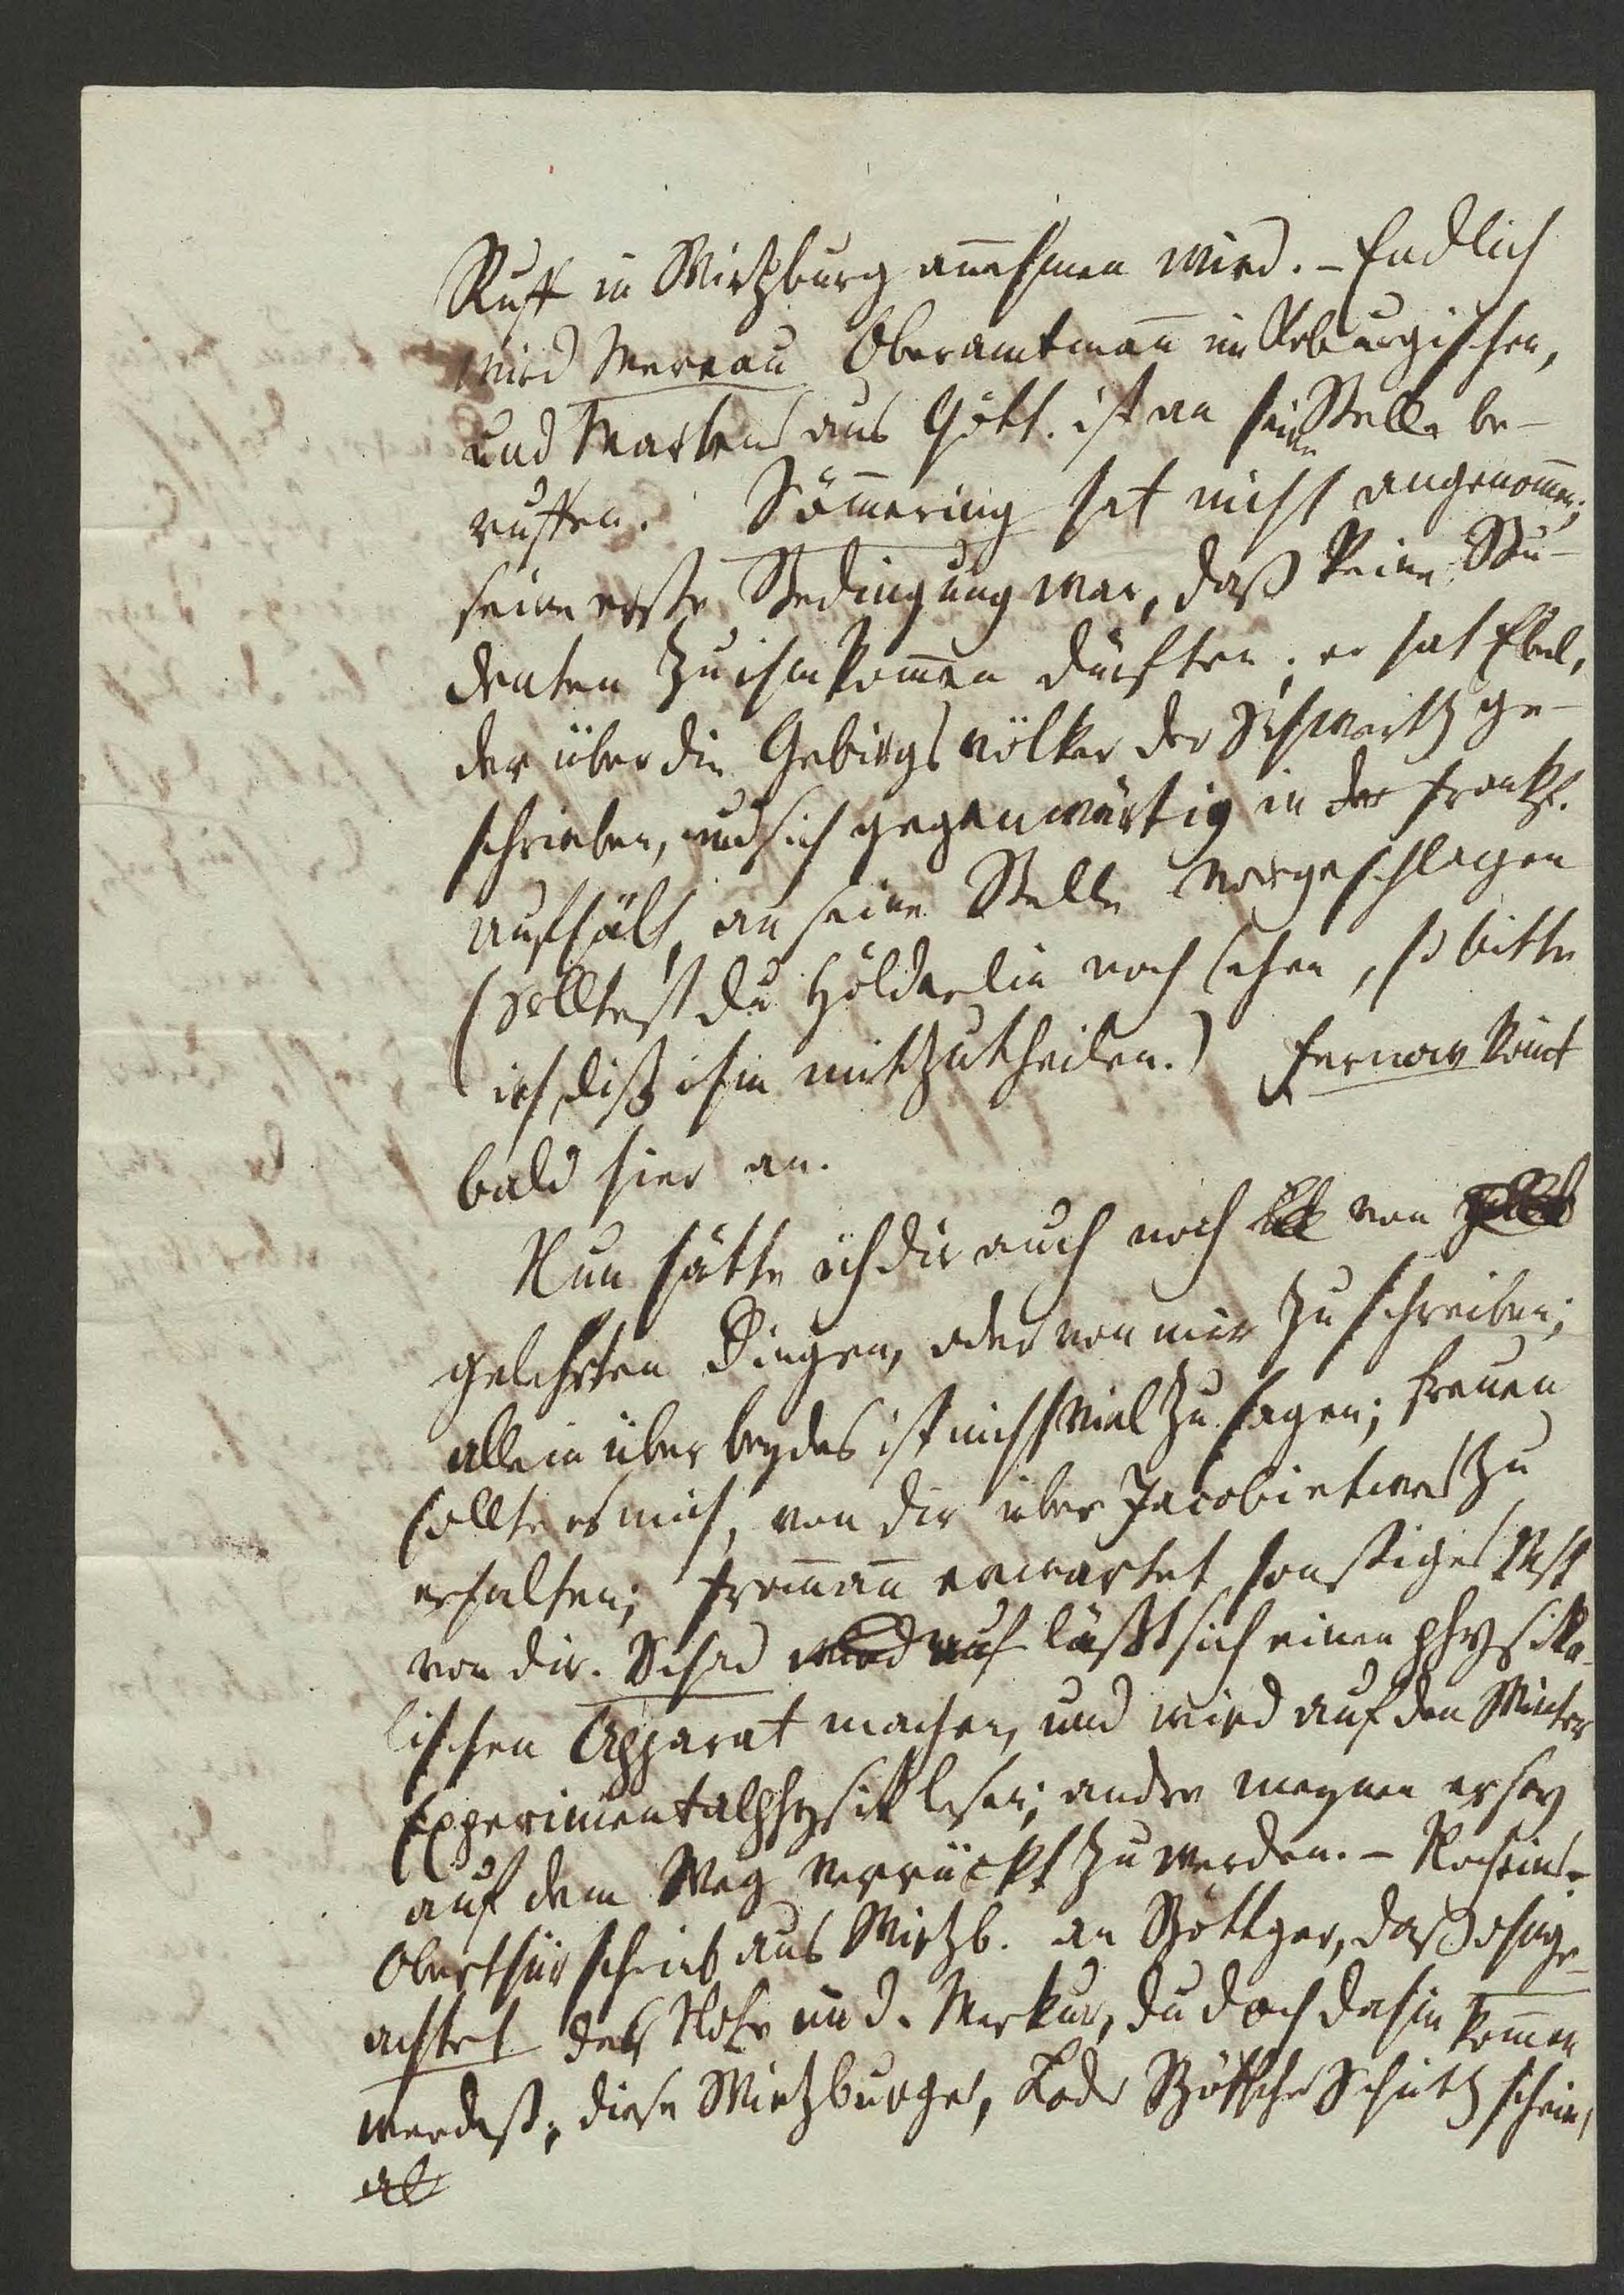 Ruff in Wirtzburg anehmen wird. – Endlich
wird Mereau Oberamtman im Koburgischen,
und Martens aus Gött. ist an seine Stelle be-
ruffen. Sömering hat nicht angenomen;
seine erste Bedingung war, daß keine Stu-
denten zu ihm komen dürften; er hat Ebel,
der über die Gebirgsvölker der Schweitz ge-
schrieben, und sich gegenwärtig in der Frankf.
aufhält, an seine Stelle vorgeschlagen
(solltest du Hölderlin noch sehen, so bitte
ich, diß ihm mitzutheilen.) Fernow komt
bald hier an.
Nun hätte ich dir auch noch von
gelehrten Dingen, oder von mir zu schreiben;
allein über beydes ist nicht viel zu sagen; freuen
sollte es mich, von dir über Jacobi etwas zu
erhalten; Froman erwartet sonstiges
von dir. Schad wird auf läßt sich einen physika-
lischen Apparat machen, und wird auf den Winter
Experimentalphysik lesen; andre meynen er sey
auf dem Weg verrückt zu werden. – Noch eins
Oberthür schrieb aus Wirtzb. an Böttger, daß ohnge-
achtet der Note im d. Merkur, du doch dahin komen
werdest; diese Wirtzburger, Lode Schütz schein,